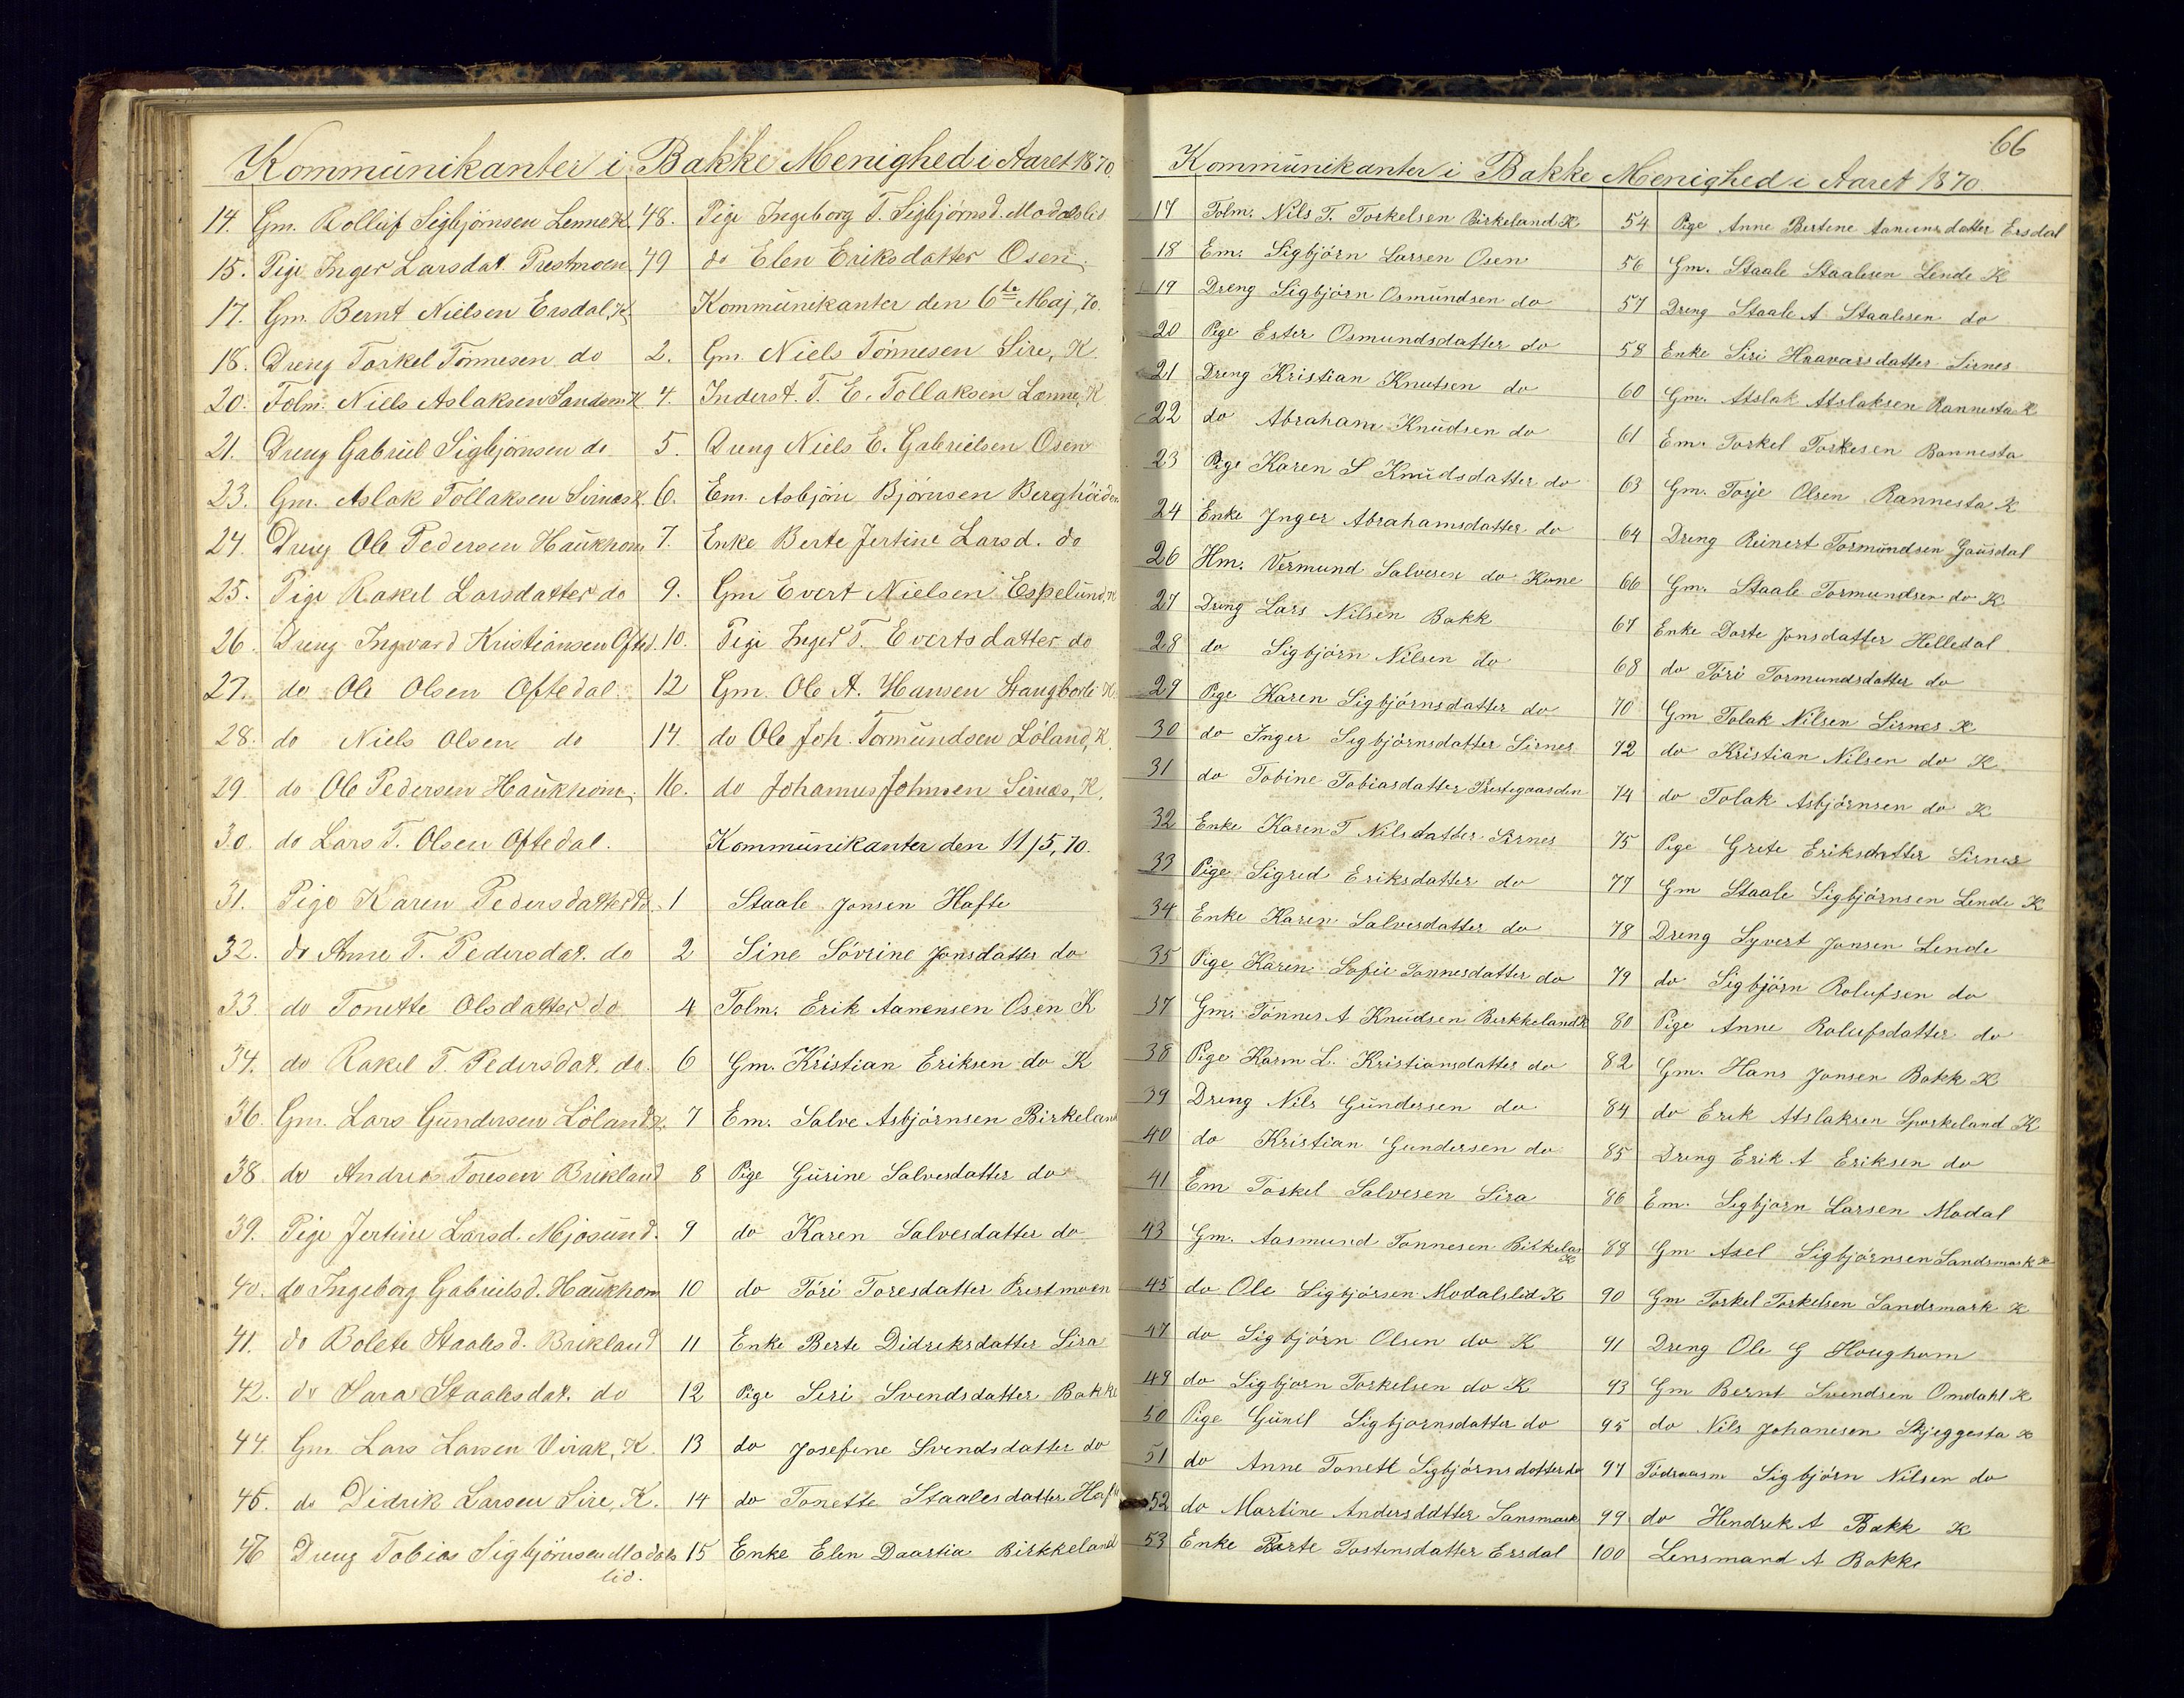 Kommunikanter i Bakke Menighed i Aaret 1870.
14. Gm. Rolluf Sigbjörnsen Lenne K.
15. Pige Inger Larsdat. Prestmoen
17. Gm. Bernt Nielsen Ersdal, K
18. Dreng Torkel Tönnesen do
20. Folm. Niels Aslaksen Sandsm. K
21. Dreng Gabriel Sigbjörnsen do
23. Gm. Aslak Tollaksen Sirnæs K.
24. Dreng Ole Pedersen Haukhom
25. Pige Rakel Larsdatter do
26. Dreng Ingvard Kristiansen Ofted.
27. do Ole Olsen Oftedal.
28. do Niels Olsen do
29 do Ole Pedersen Haukhom.
30. do Lars T. Olsen Oftedal.
31. Pige Karen Pedersdatter
32. do Anne T. Pedersdat. do
33. do Tonette Olsdatter do
34. do Rakel T. Pedersdat. do.
36. Gm. Lars Gundersen Löland K.
38. do Andreas Toresen Brikland
39. Pige Jertine Larsd. Mjosund.
40. do Ingeborg Gabrielsd. Haukhom
41. do Bolete Staalesd. Brikland
42. do Sara Staalesdat. do
44. Gm. Lars Larsen Virak, K.
45. do Didrik Larsen Sire, K.
46 Dreng Tobias Sigbjörnsen Modals
lid.
48. Pige Ingeborg T. Sigbjörnsd. Modalslid
49 do Elen Eriksdatter Osen.
Kommunikanter den 6te Maj, 70.
2. Gm. Niels Tönnesen Sire, K.
4. Inderst. T. E. Tollaksen Lenne, K
5. Dreng Niels E. Gabrielsen Osen
6. Em. Asbjörn Björnsen Berghöiden
7. Enke Berte Jertine Larsd. do
9. Gm Evert Nielsen Espelund, K
10. Pige Inger T. Evertsdatter do
12 Gm. Ole A. Hansen Stangborli K
14. do Ole Joh. Tormundsen Löland, K.
16. do Johannes Johnsen Sirnæs, K.
Kommunikanter den 11/5, 70.
1 Staale Jonsen Hafte
2 Sine Sövrine Jonsdatter do
4 Tolm. Erik Aanensen Osen K
6 Gm. Kristian Eriksen do K
7 Em. Salve Asbjörnsen Birkeland
8 Pige Gurine Salvesdatter do
9 do Karen Salvesdatter do
10 do Töri Toresdatter Prestmoen
11 Enke Berte Didreksdatter Sira
12 Pige Siri Svendsdatter Bakke
13 do Josefine Svendsdatter do
14 do Tonette Staalesdatter Hafte
15 Enke Elen Daartia Birkkeland
66
Kommunikanter i Bakke Menighed i Aaret 1870
17 Tolm. Nils T. Torkelsen Birkeland K
18 Em. Sigbjörn Larsen Osen
19 Dreng Sigbjörn Osmundsen do
20 Pige Ester Osmundsdatter do
21 Dreng Kristian Knutsen do
22 do Abraham Knudsen do
23 Pige Karen S Knudsdatter do
24 Enke Inger Abrahamsdatter do
26 Hm. Vermund Salvesen do Kone
27 Dreng Lars Nilsen Bakk
28 do Sigbjörn Nilsen do
29 Pige Karen Sigbjörnsdatter do
30 do Inger Sigbjörnsdatter Sirnes
31 do Tobine Tobiasdatter Prestegaarden
32 Enke Karen T Nilsdatter Sirnes
33 Pige Sigred Eriksdatter do
34 Enke Karen Salvesdatter do
35 Pige Karen Sofie Tonnesdatter do
37 Gm. Tönnes A Knudsen Birkkeland K
38 Pige Karen L. Kristiansdatter do
39 Dreng Nils Gundersen do
40 do Kristian Gundersen do
41 Em Torkel Salvesen Sira
43 Gm. Aasmund Tonnesen Birkelan
K
45 do Ole Sigbjörsen Modalslid K
47 do Sigbjörn Olsen do K
49 do Sigbjorn Torkelsen do K
50 Pige Gunil Sigbjornsdatter do
51 do Anne Tonett Sigbjörnsdatter do
52 do Martine Andersdatter Sansmark
53 Enke Barte Tostensdatter Ersdal
54 Pige Anne Bertene Aanensdatter Ersdal
56 Gm. Staale Staalesen Lende K
57 Dreng Staale A Staalesen do
58 Enke Siri Haavarsdatter Sirnes
60 Gm. Atslak Atslaksen Rannesta K
61 Em. Torkel Torkesen Rannesta
63 Gm. Torje Olsen Rannesta K
64 Dreng Reinert Tormundsen Gausdal
66 Gm. Staale Tormundsen do K
67 Enke Dorte Jonsdatter Helledal
68 do Töri Tormundsdatter do
70 Gm Tolak Nilsen Sirnes K
72 do Kristian Nilsen do K
74 do Tolak Asbjörnsen do K
75 Pige Grete Eriksdatter Sirnes
77 Gm Staale Sigbjörnsen Lende K
78 Dreng Syvert Jonsen Lende
79 do Sigbjörn Rolufsen do
80 Pige Anne Rolufsdatter do
82 Gm. Hans Jonsen Bakk K
84 do Erik Atslaksen Sporkeland K
85 Dreng Erik A Eriksen do
86 Em. Sigbjörn Larsen Modal
88 Gm Axel Sigbjörnsen Sandsmark K
90 Gm Torkel Torkelsen Sandsmark K
91 Dreng Ole G Hougham
93 Gm Bernt Svendsen Omdahl K
95 do Nils Johanesen Skjeggesta K
97 Födraasm Sigbjörn Nilsen do
99 do Hendrek A Bakk K
100 Lensmand A Bakke